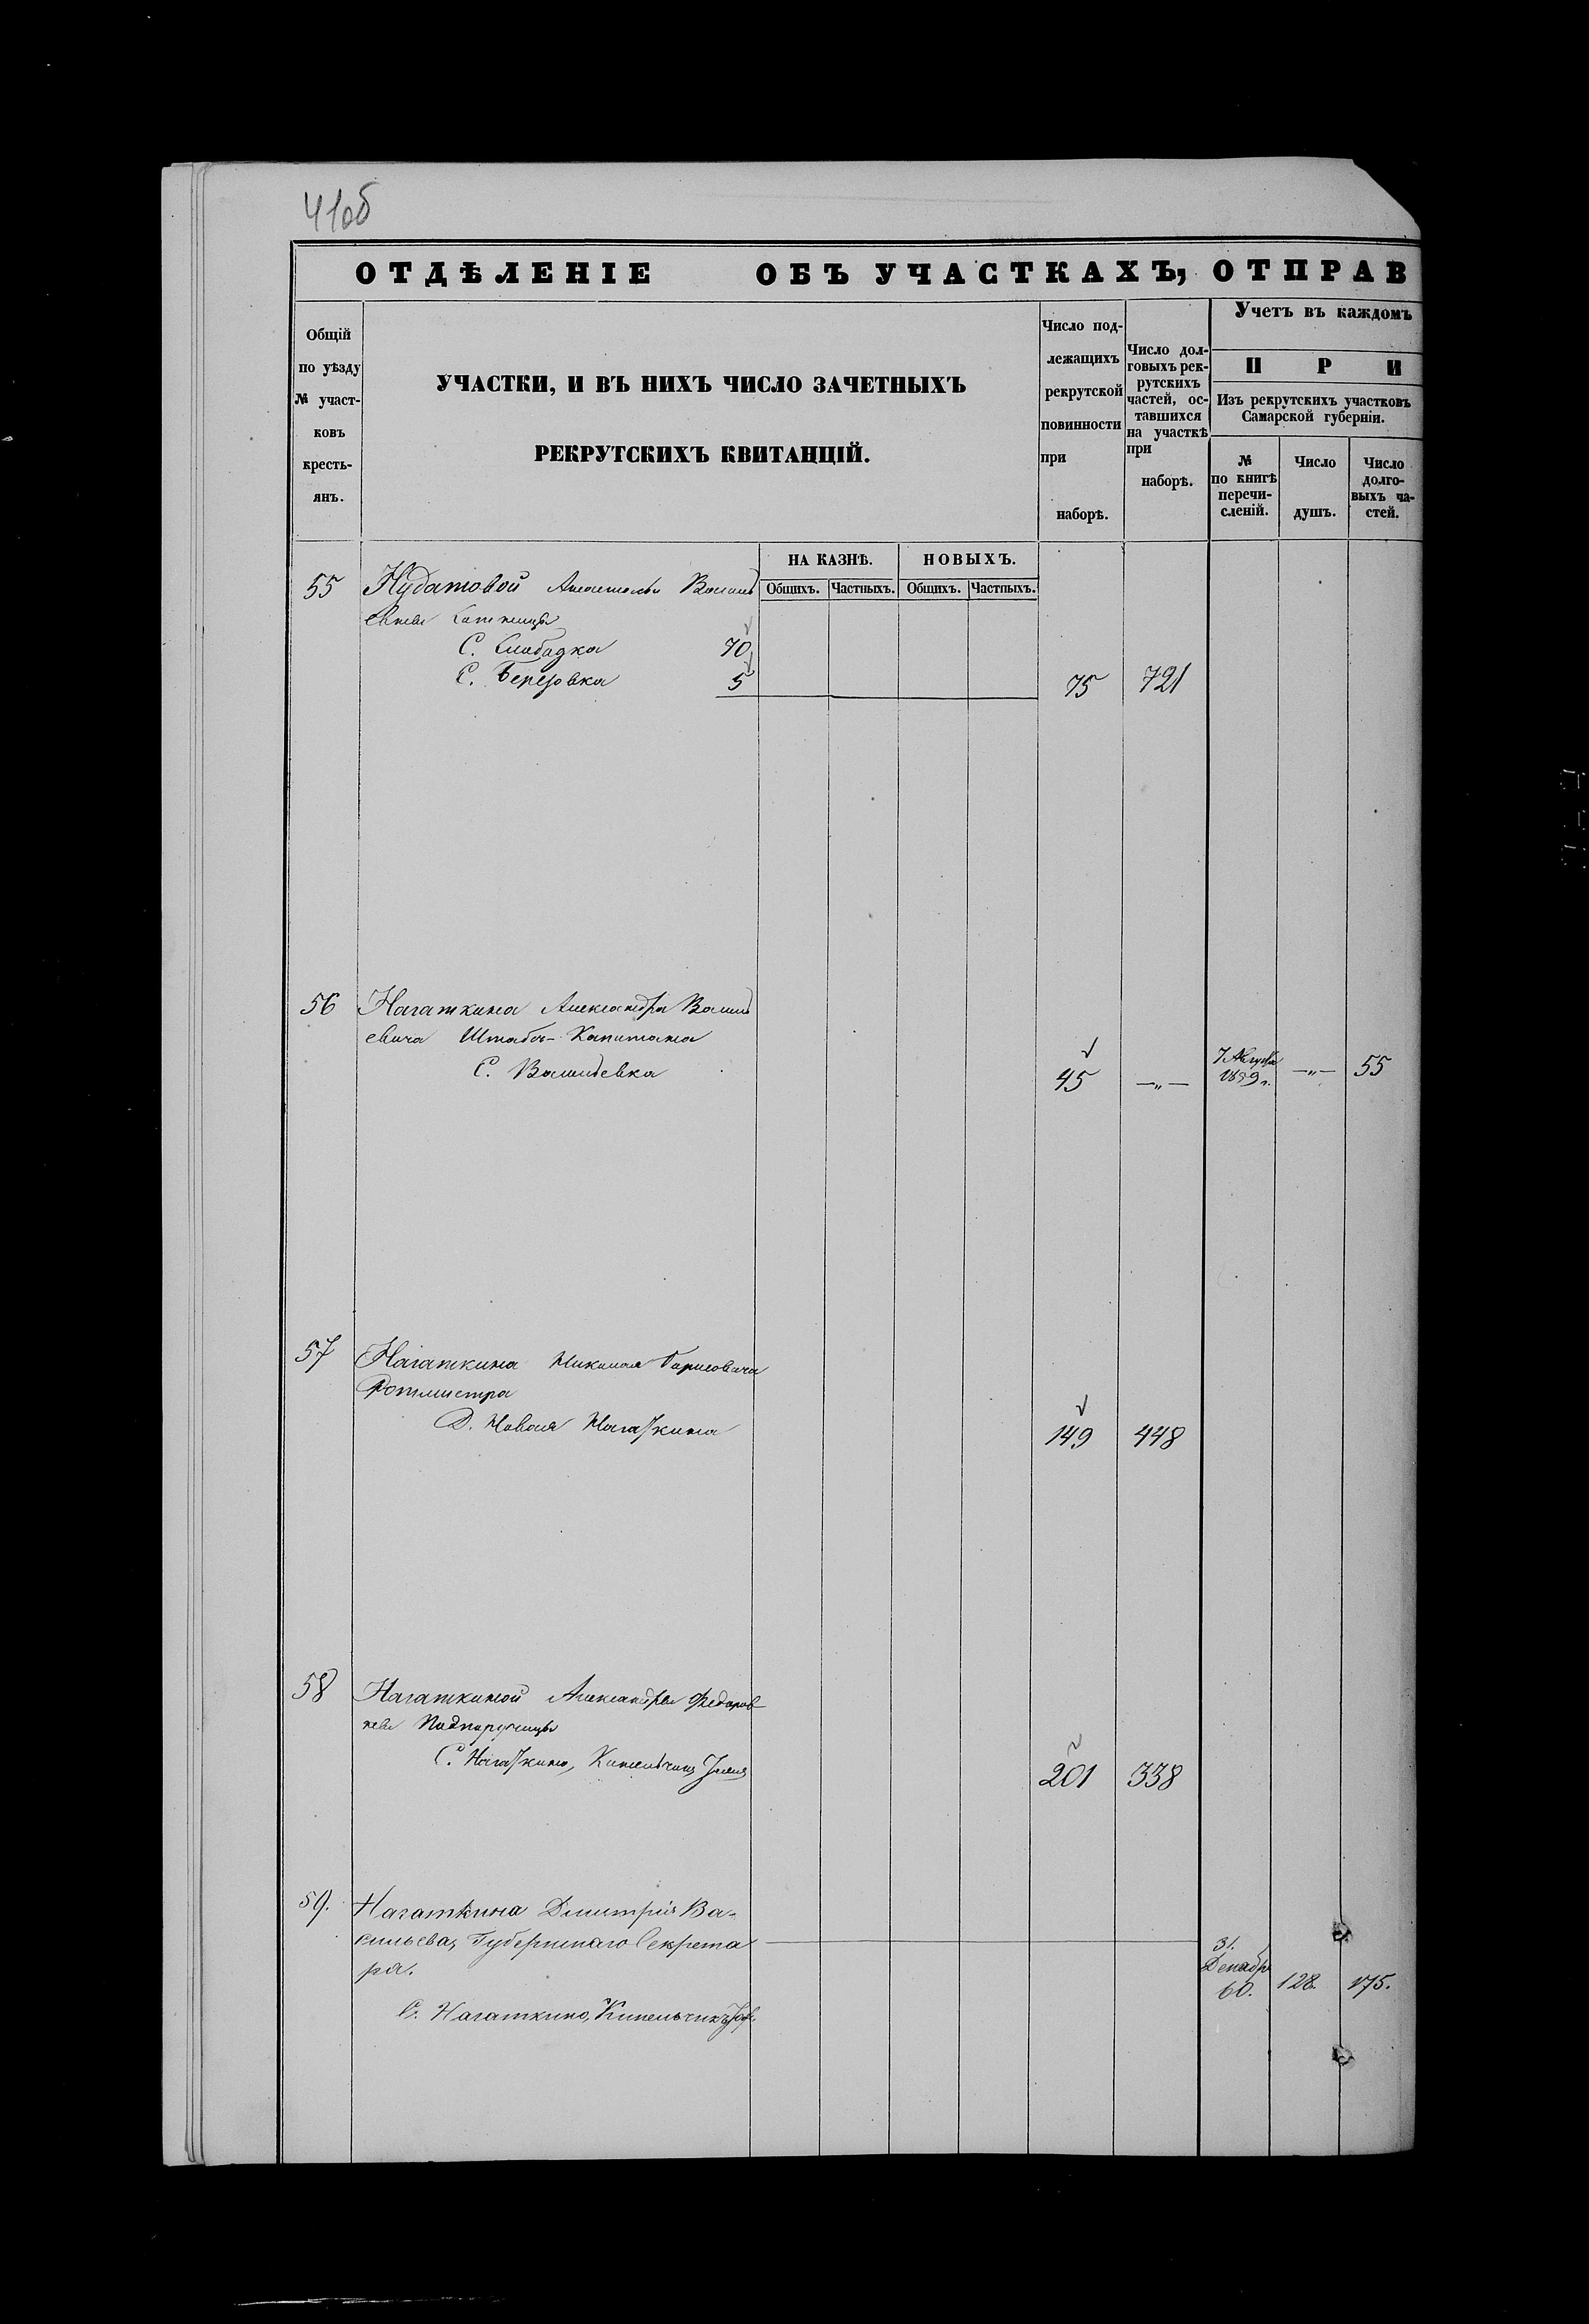 41об
ОТДѢЛЕНІЕ ОБЪ УЧАСТКАХЪ, ОТПРАВ
Общій
по уѣзду
№ участ-
ковъ
кресть-
янъ.
УЧАСТКИ, И ВЪ НИХЪ ЧИСЛО ЗАЧЕТНЫХЪ
РЕКРУТСКИХЪ КВИТАНЦІЙ.
Число под-
лежащихъ
рекрутской
повинности
при
наборѣ.
Число дол-
говыхъ рек-
рутскихъ
частей, ос-
тавшихся
на участкѣ
при
наборѣ.
Учетъ въ каждомъ
П Р И
Изъ рекрутскихъ участковъ
Самарской губерніи.
№
по книгѣ
перечи-
сленій.
Число
душъ.
Число
долго-
выхъ ча-
стей.
НА КАЗНѢ. НОВЫХЪ.
Общихъ. Частныхъ. Общихъ. Частныхъ.
55 Кудатовой
С. Слабадка 70
С. Березовка 5 75 721
56 Нагаткина Александра Василь
евича Штабсъ-Капитана
С. Васильевка 45 —„— 7 Августа 1859 г. —„— 55
57 Нагаткина Николая Борисовича
Ротмистра
Д. Новая Нагаткина 149 448
58 Нагаткиной Александры Федоров
ны Падпаручицы
С. Нагаткино, Кинельчикъ 201 338
59. Нагаткина Дмитрія Ва-
сильева, Губернскаго Секрета
ря.
31. Декабр. 60. 128. 175.
С. Нагаткино, Кинельчикъ